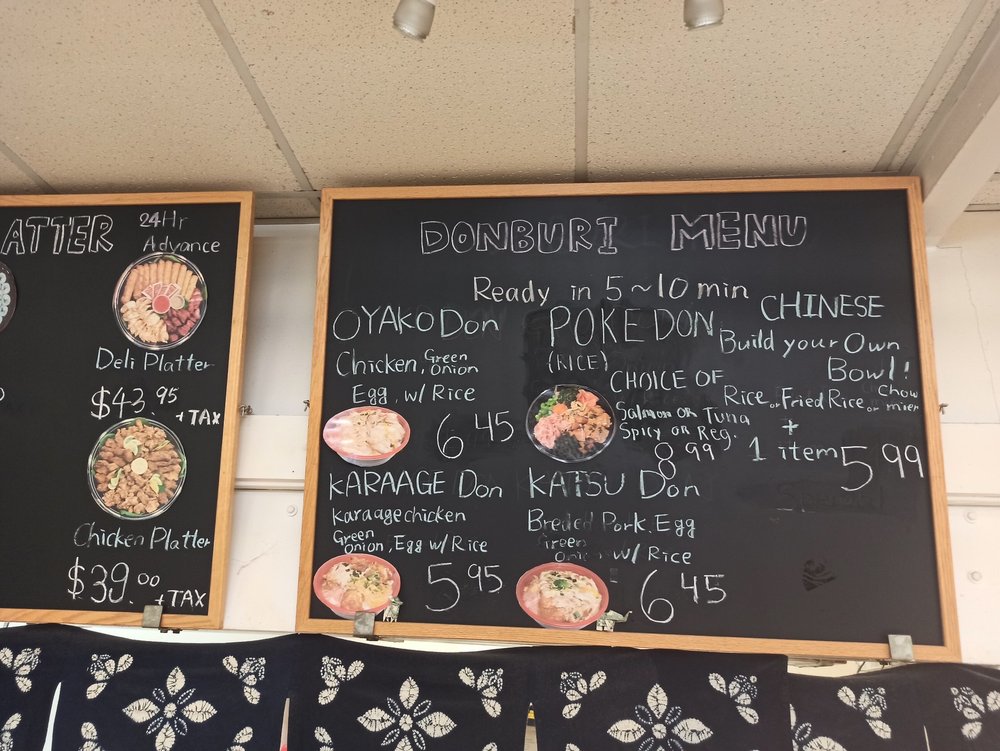 ATTER
24Hr
Advance
Deli Platter
$43.95
+TAX
Chicken Platter
$39.00
+TAX
DONBURI MENU
Ready in 5~10 min
OYAKO Don
Chicken, Green Onion
Egg, w/ Rice
6 45
POKE DON
(RICE)
CHOICE OF
Salmon or Tuna
Spicy or Reg.
8 99
CHINESE
Build your Own
Bowl!
Rice or Fried Rice or Chow mien
+
1 item 5 99
KARAAGE Don
Karaage chicken
Green Onion, Egg w/ Rice
5 95
KATSU Don
Breded Pork, Egg
Green Onion w/ Rice
6 45